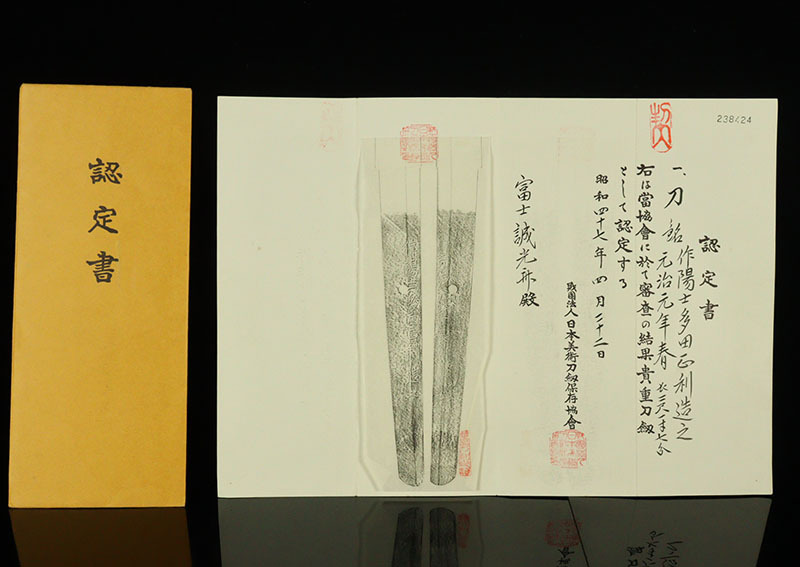 認定書
238424
認定書
一、刀 銘 作陽士多田正利造之
元治元年春 長二尺一寸七分
右は當協會に於て審査の結果貴重刀劔
として認定する
昭和四十七年四月二十二日
財團法人日本美術刀劔保存協會
富士誠光 殿